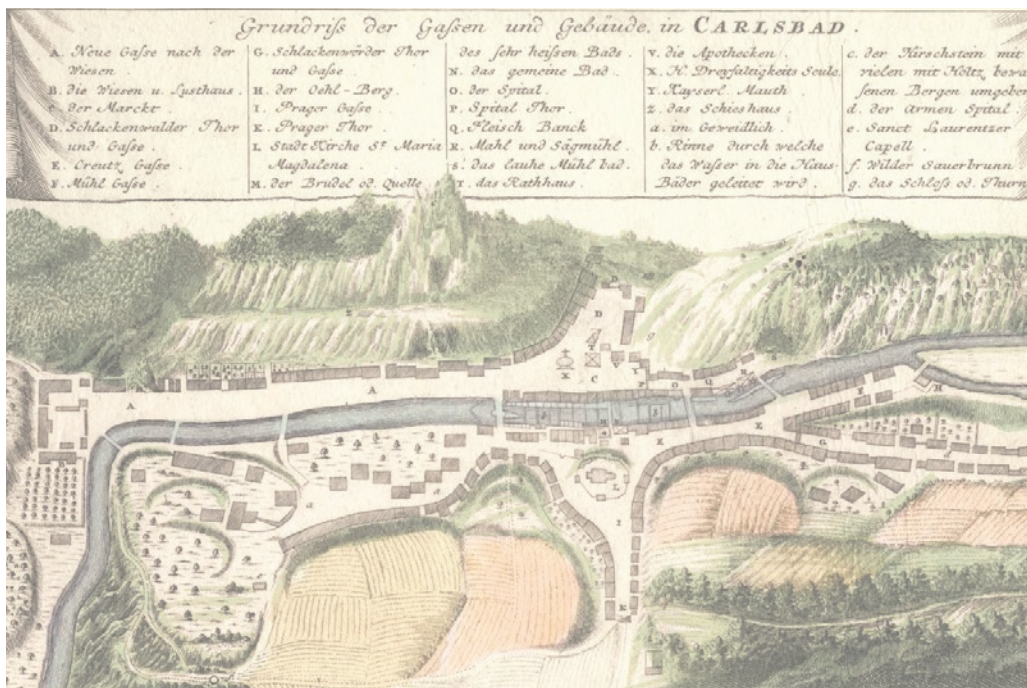 Grundriß der Gaßen und Gebäude, in CARLSBAD.
A. Neue Gaße nach der
Wiesen
B. die Wiesen u. Lusthaus.
C. der Marckt.
D. Schlackenwalder Thor
und Gaße.
E. Creutz Gaße.
F. Mühl Gaße.
G. Schlackenwörder Thor
und Gaße.
H. der Oehl-Berg.
I. Prager Gaße.
K. Prager Thor.
L. Stadt Kirche St. Maria
Magdalena.
M. der Brudel od. Quelle
des sehr heißen Bads.
N. das gemeine Bad.
O. der Spital.
P. Spital Thor.
Q. Fleisch Banck
R. Mahl und Sägmühl.
S. das lauhe Mühl bad.
T. das Rathhaus.
V. die Apothecken.
X. H. Dreyfaltigkeits Seule.
Y. Kayserl. Mauth
Z. das Schieshaus
a. im Geweidlich.
b. Rinne durch welche
das Waßer in die Haus-
Bäder geleitet wird.
c. der Hirschstein mit
vielen mit Holtz bewa
senen Bergen umgeben
d. der Armen Spital.
e. Sanct Laurentzer
Capell.
f. Wilder Sauerbrunn.
g. das Schloß od. Thurn
D
D
g
T
X
C
V
Y
P
O
Q
R
S
A
A
A
Z
E
E
F
H
G
L
I
K
B
a